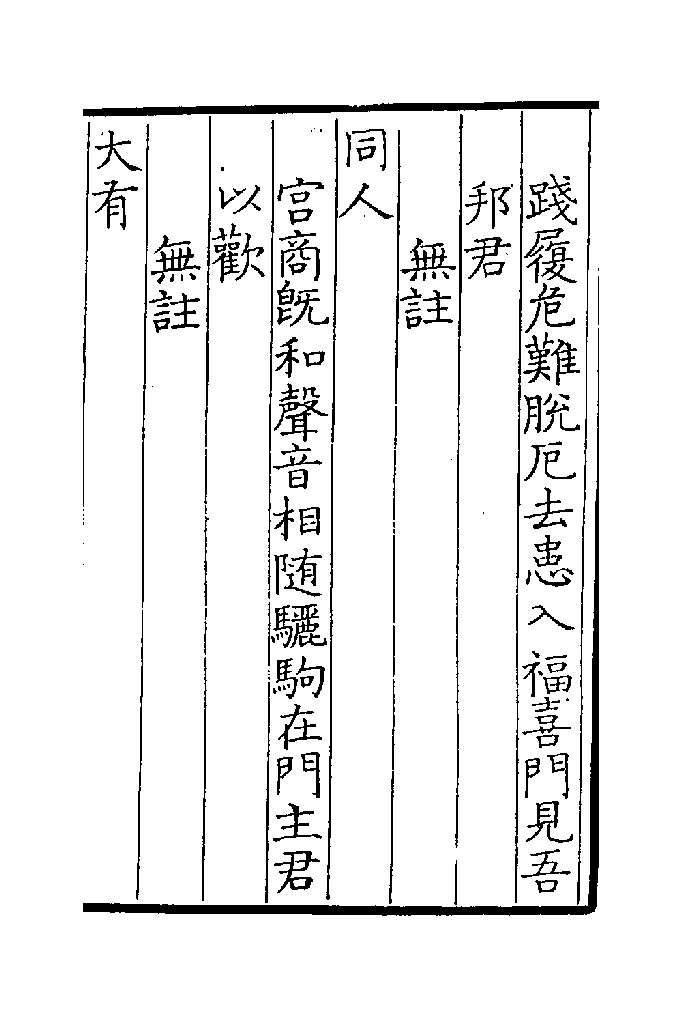 踐履危難脫厄去患入福喜門見吾
邦君
無註
同人
宮商旣和聲音相随驪駒在門主君
以歡
無註
大有